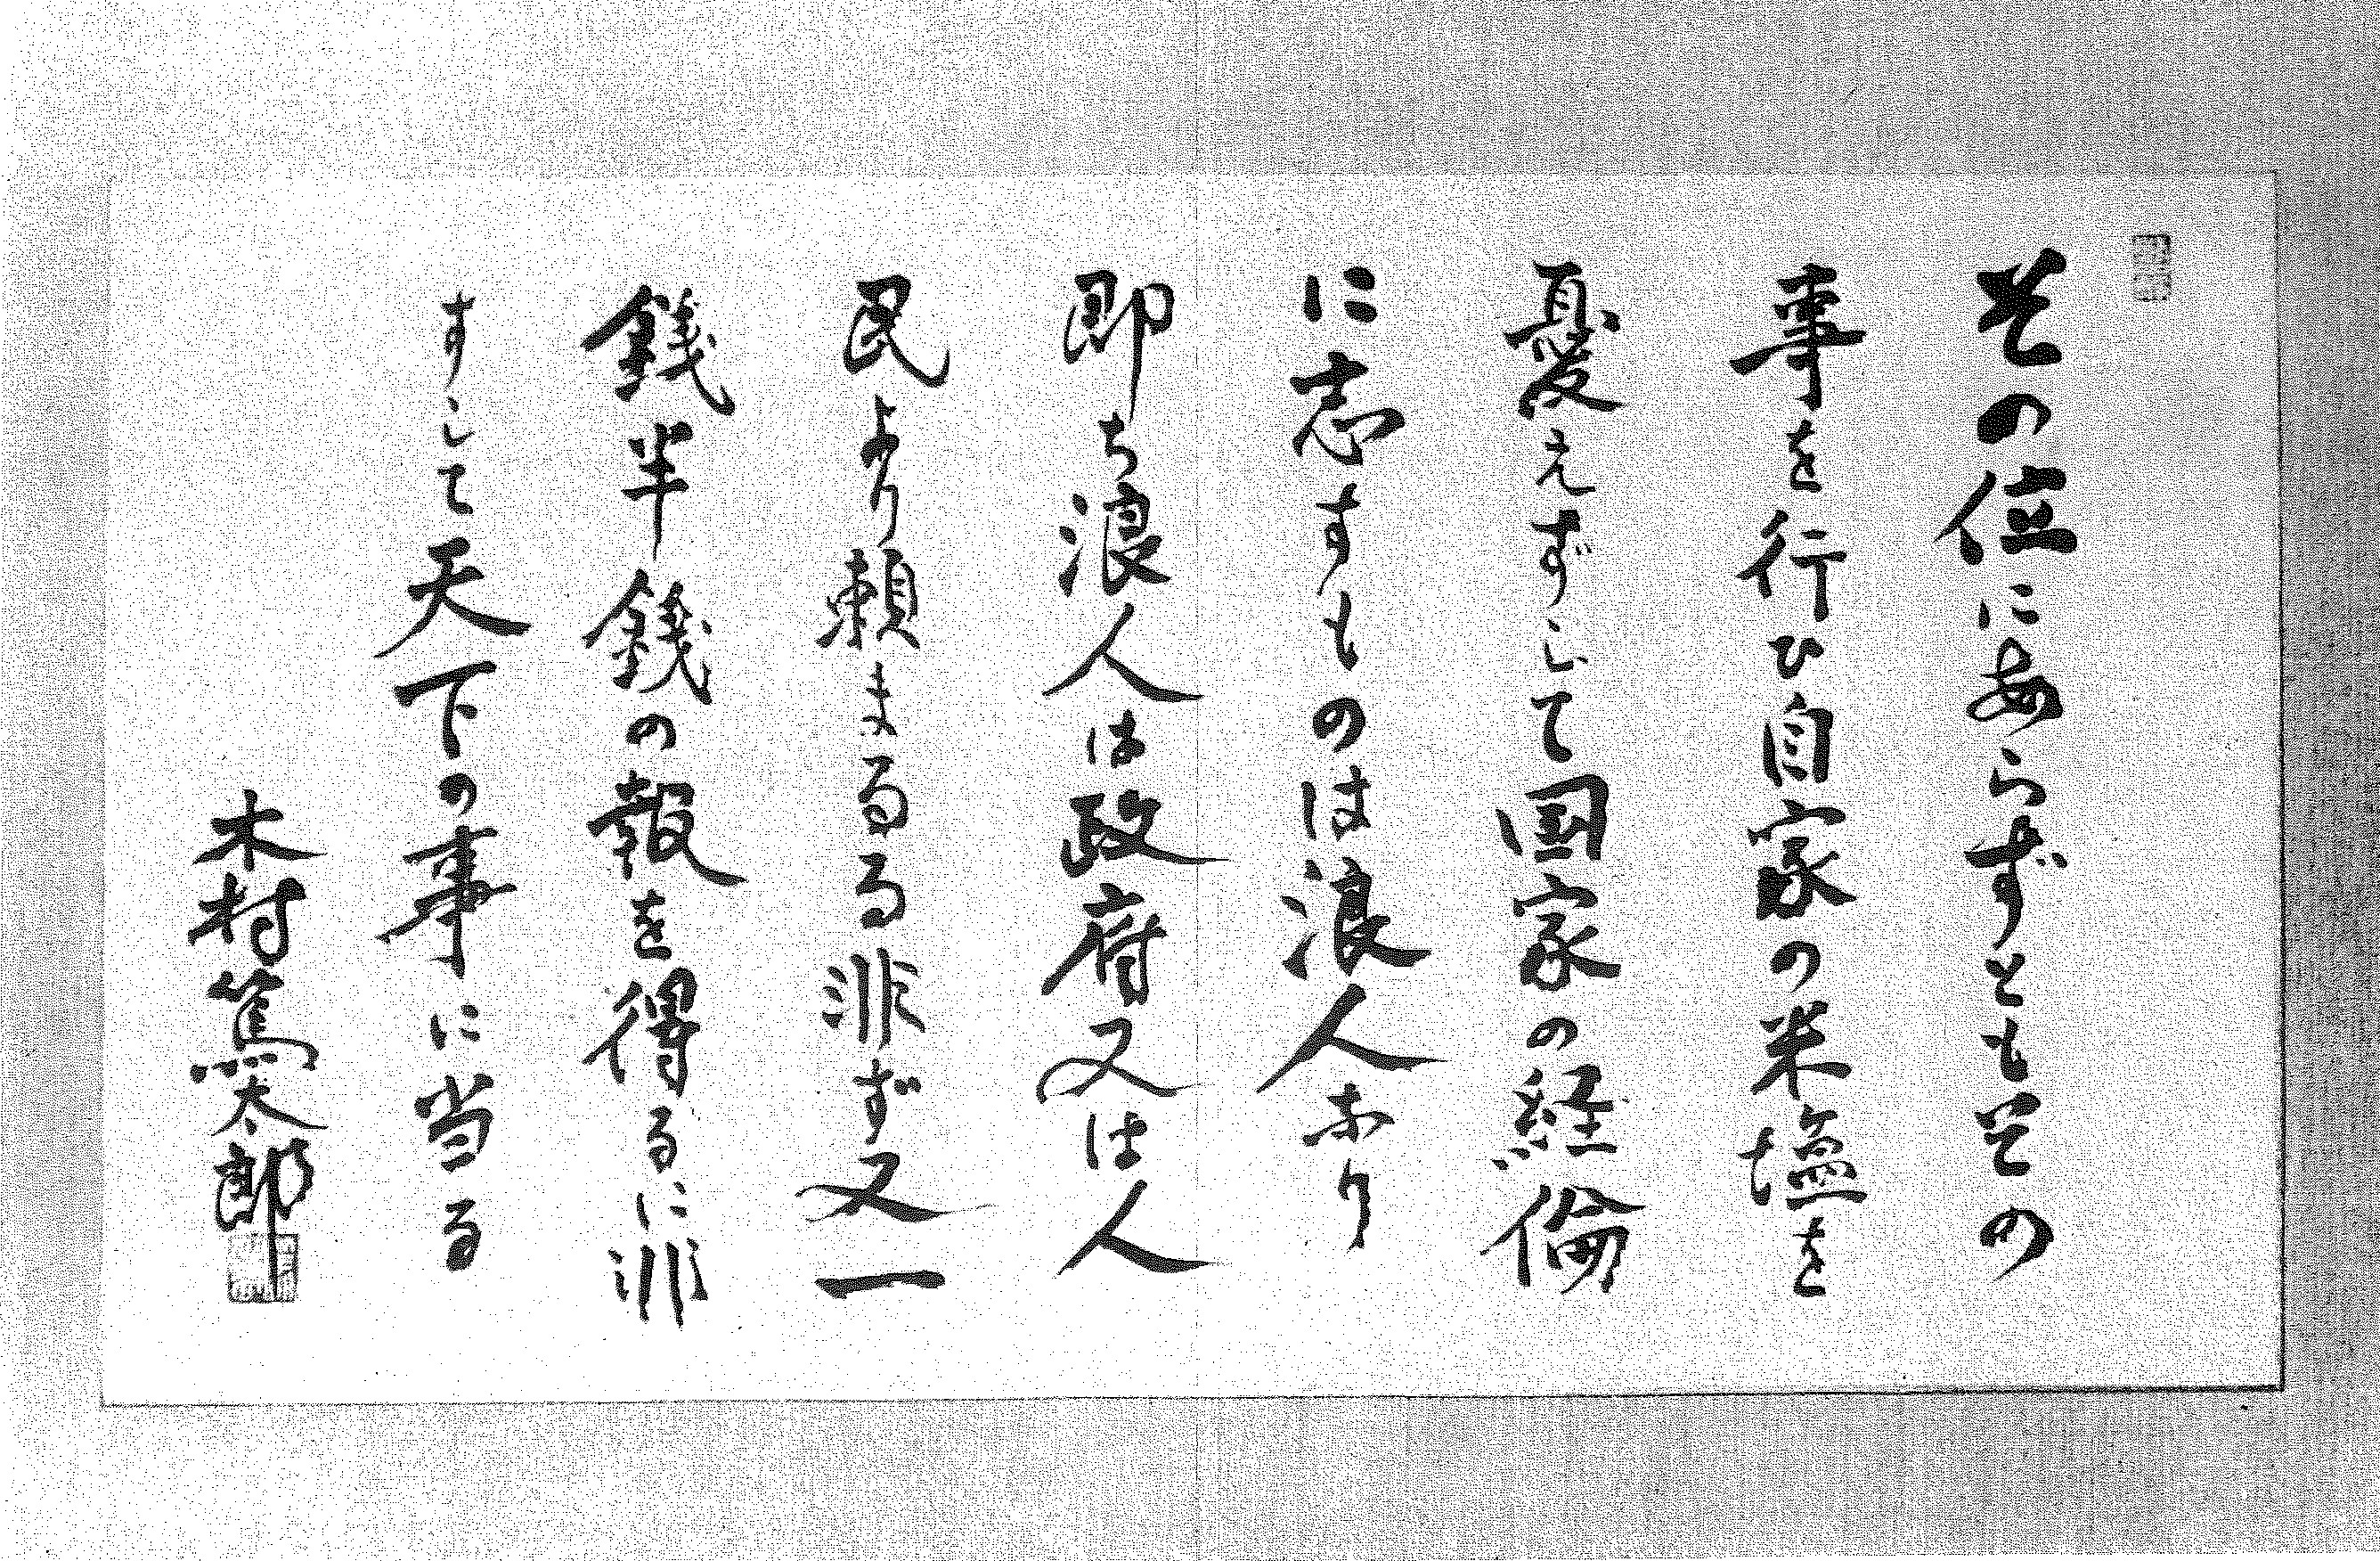 その位にあらずともその
事を行ひ自家の米塩を
憂えずして国家の経倫
に志すものは浪人なり
即ち浪人は政府又は人
民より頼まるる非ず又一
銭半銭の報を得るに非
ずして天下の事に当る
木村篤太郎